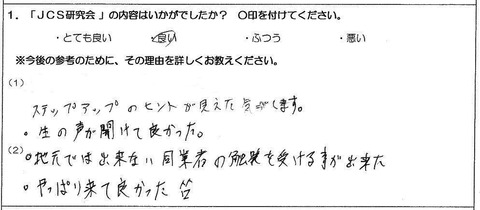 1．「JCS研究会」の内容はいかがでしたか？　〇印を付けてください。
・とても良い　・良い　・ふつう　・悪い
※今後の参考のために、その理由を詳しくお教えください。
(1)
ステップアップのヒントが見えた気がします。
・生の声が聞けて良かった。
(2)
・地元では出来ない同業者の触発を受ける事が出来た
・やっぱり来て良かった 笑